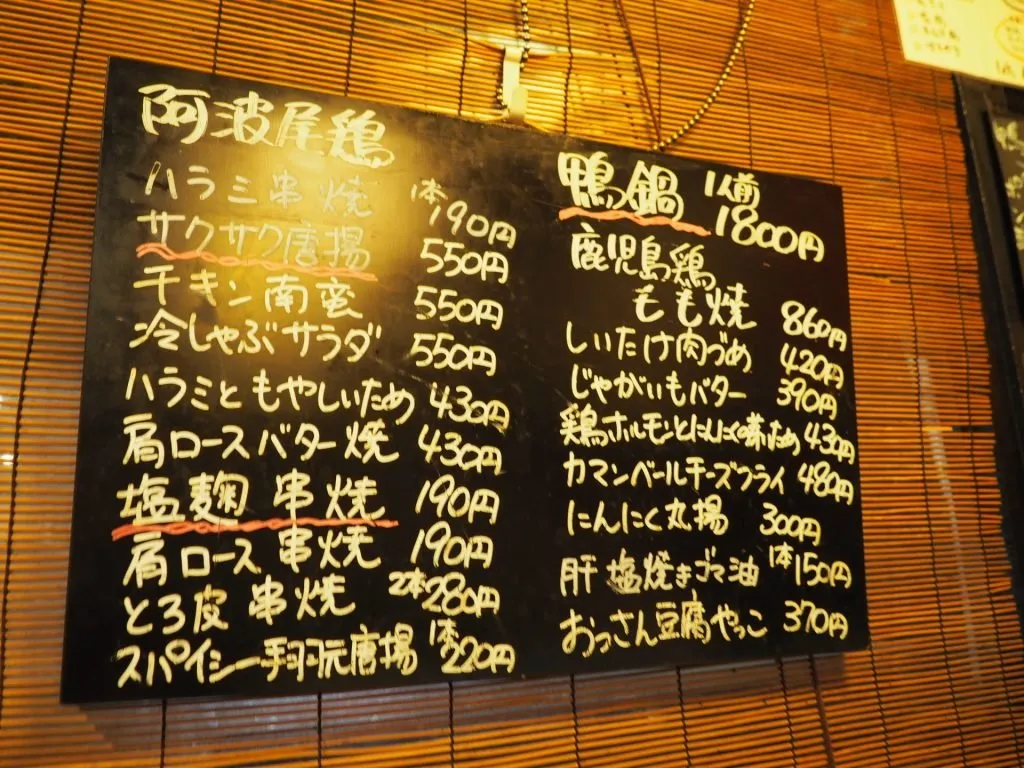 阿波尾鶏
ハラミ串焼 1本 190円
サクサク唐揚 550円
チキン南蛮 550円
冷しゃぶサラダ 550円
ハラミともやしいため 430円
肩ロースバター焼 430円
塩麹串焼 190円
肩ロース串焼 190円
とろ皮串焼 2本 280円
スパイシー手羽元唐揚 1本 220円
鴨鍋 1人前 1800円
鹿児島鶏
もも焼 860円
しいたけ肉づめ 420円
じゃがいもバター 390円
鶏ホルモンとにんにくの芽いため 430円
カマンベールチーズフライ 480円
にんにく丸揚 300円
肝塩焼きゴマ油 1本 150円
おっさん豆腐やっこ 370円